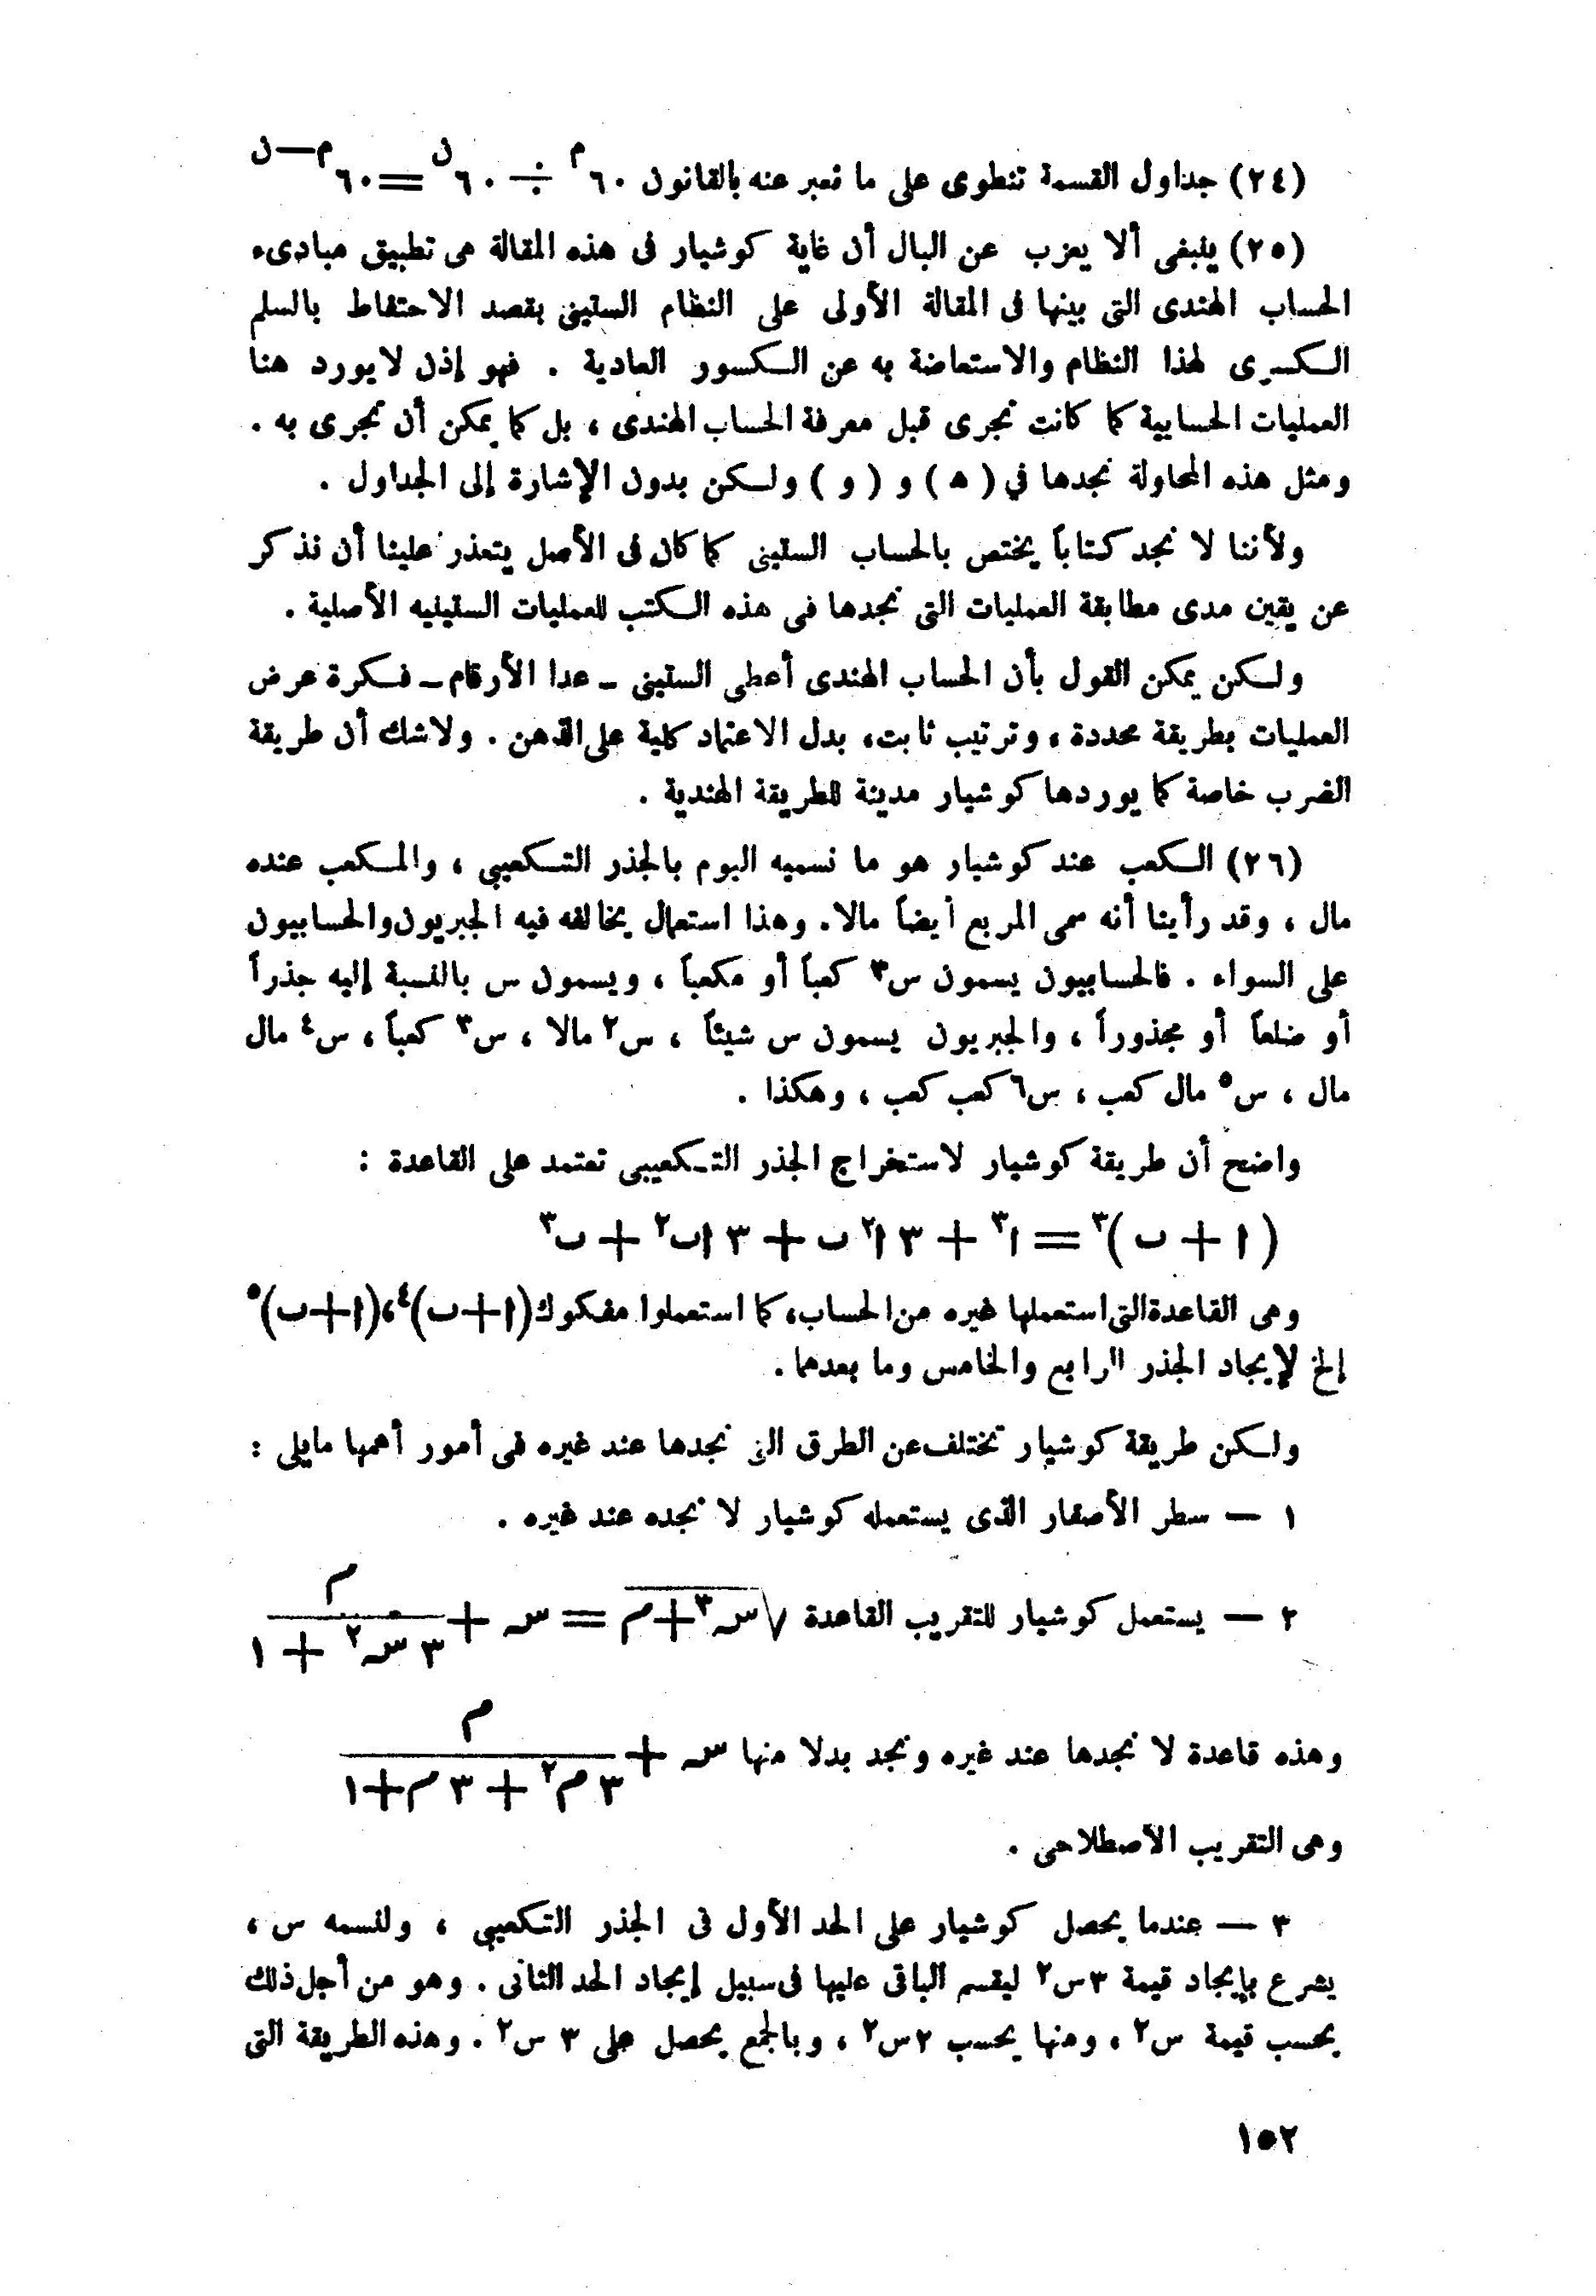 (٢٤) جداول القسمة تنطوى على ما نعبر عنه بالقانون ٦٠^م ÷ ٦٠^ن = ٦٠^م—ن
(٢٥) ينبغى ألا يعزب عن البال أن غاية كوشيار فى هذه المقالة هى تطبيق مبادىء
الحساب الهندى التى بينها فى المقالة الأولى على النظام الستينى بقصد الاحتفاظ بالسلم
الكسرى لهذا النظام والاستعاضة به عن الكسور العادية . فهو إذن لايورد هنا
العمليات الحسابية كما كانت تجرى قبل معرفة الحساب الهندى ، بل كما يمكن أن تجرى به .
ومثل هذه المحاولة نجدها في ( ه ) و ( و ) ولكن بدون الإشارة إلى الجداول .
ولأننا لا نجد كتاباً يختص بالحساب الستينى كما كان فى الأصل يتعذر علينا أن نذكر
عن يقين مدى مطابقة العمليات التى نجدها فى هذه الكتب للعمليات الستينيه الأصلية .
ولكن يمكن القول بأن الحساب الهندى أعطى الستينى ــ عدا الأرقام ــ فكرة عرض
العمليات بطريقة محددة ، وترتيب ثابت، بدل الاعتماد كلية على الذهن . ولاشك أن طريقة
الضرب خاصة كما يوردها كوشيار مدينة للطريقة الهندية .
(٢٦) الكعب عند كوشيار هو ما نسميه اليوم بالجذر التكعيبي ، والمكعب عنده
مال ، وقد رأينا أنه سمى المربع أيضاً مالا. وهذا استعمال يخالفه فيه الجبريون والحسابيون
على السواء . فالحسابيون يسمون س٣ كعباً أو مكعباً ، ويسمون س بالنسبة إليه جذراً
أو ضلعاً أو مجذوراً ، والجبريون يسمون س شيئاً ، س٢ مالا ، س٣ كعباً ، س٤ مال
مال ، س٥ مال كعب ، س٦ كعب كعب ، وهكذا .
واضح أن طريقة كوشيار لاستخراج الجذر التكعيبى تعتمد على القاعدة :
(ا + ب)٣ = ا٣ + ٣ ا٢ ب + ٣ اب٢ + ب٣
وهى القاعدة التى استعملها غيره من الحساب، كما استعملوا مفكوك (ا+ب)٤، (ا+ب)٥
إلخ لإيجاد الجذر الرابع والخامس وما بعدهما .
ولكن طريقة كوشيار تختلف عن الطرق التى نجدها عند غيره فى أمور أهمها مايلى :
١ — سطر الأصفار الذى يستعمله كوشيار لا نجده عند غيره .
٢ — يستعمل كوشيار للتقريب القاعدة √س٣+م = س + م / ٣ س٢ + ١
وهذه قاعدة لا نجدها عند غيره ونجد بدلا منها س + م / ٣ م٢ + ٣ م+١
وهى التقريب الاصطلاحى .
٣ — عندما يحصل كوشيار على الحد الأول فى الجذر التكعيبي ، ولنسمه س ،
يشرع بإيجاد قيمة ٣س٢ ليقسم الباقى عليها فى سبيل إيجاد الحد الثانى . وهو من أجل ذلك
يحسب قيمة س٢ ، ومنها يحسب ٢س٢ ، وبالجمع يحصل على ٣ س٢ . وهذه الطريقة التى
١٥٢